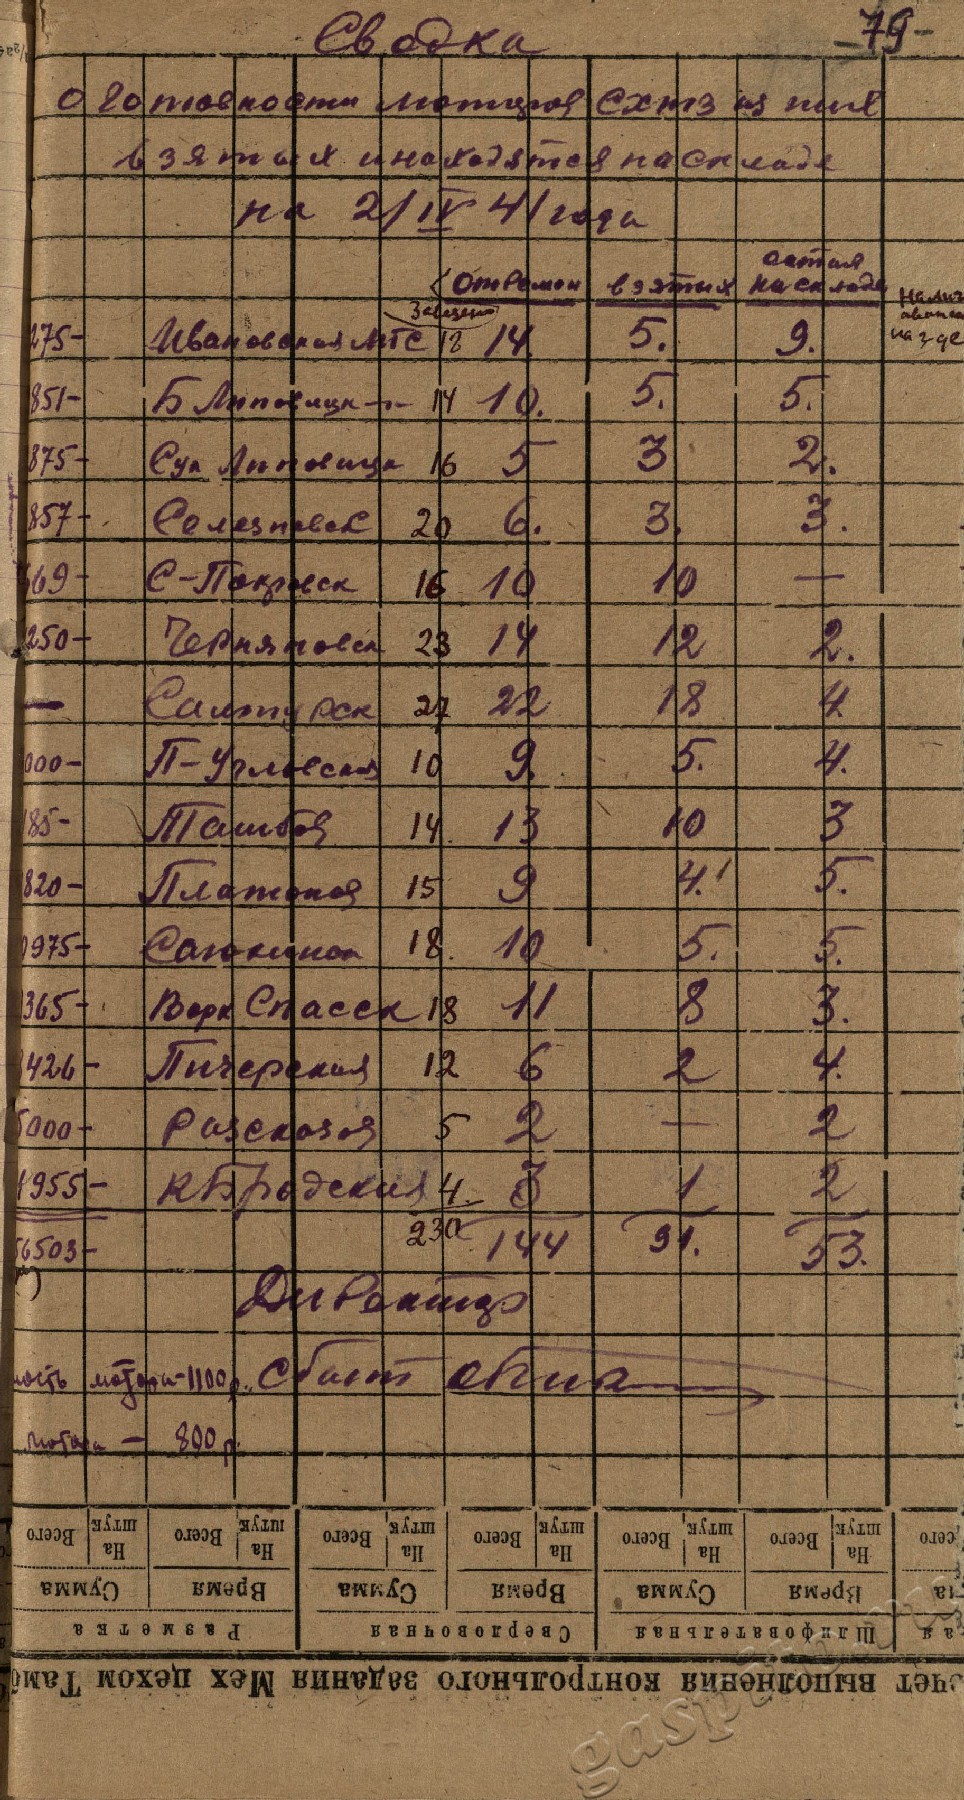 -79-
Сводка
о готовности моторов СХТЗ из них
взятых и находятся на складе
на 2/IV 41 года
Завезено Отремон взятых остал на складе Налич
275- Ивановская МТС 18 14. 5. 9.
851- Б Липовицк -"- 14 10. 5. 5.
875- Сух Липовицк 16 5 3 2.
857- Селезневск 20 6. 3. 3.
69- С-Покровск 16 10 10 —
250- Черняновск 23 14 12 2.
— Салтурск 27 22 18 4
000- П-Угловская 10 9. 5. 4.
185- Тамбов 14. 13 10 3
820- Платонов 15 9 4. 5.
975- Сатюкинск 18. 10 5. 5.
365- Верх Спасск 18 11 8 3.
426- Пичерская 12 6 2 4.
5000- Рассказов 5 2 — 2
1955- К Бродская 4 3 1 2
6503- 230 144 91. 53.
Директор
мотора-1100р. Сбыт
мотора — 800р.
Всего На штук Всего На штук Всего На штук Всего На штук Всего На штук Всего На штук
Сумма Время Сумма Время Сумма Время
Разметка Сверловочная Шлифовательная
чет выполнения контрольного задания Мех цехом Тамб